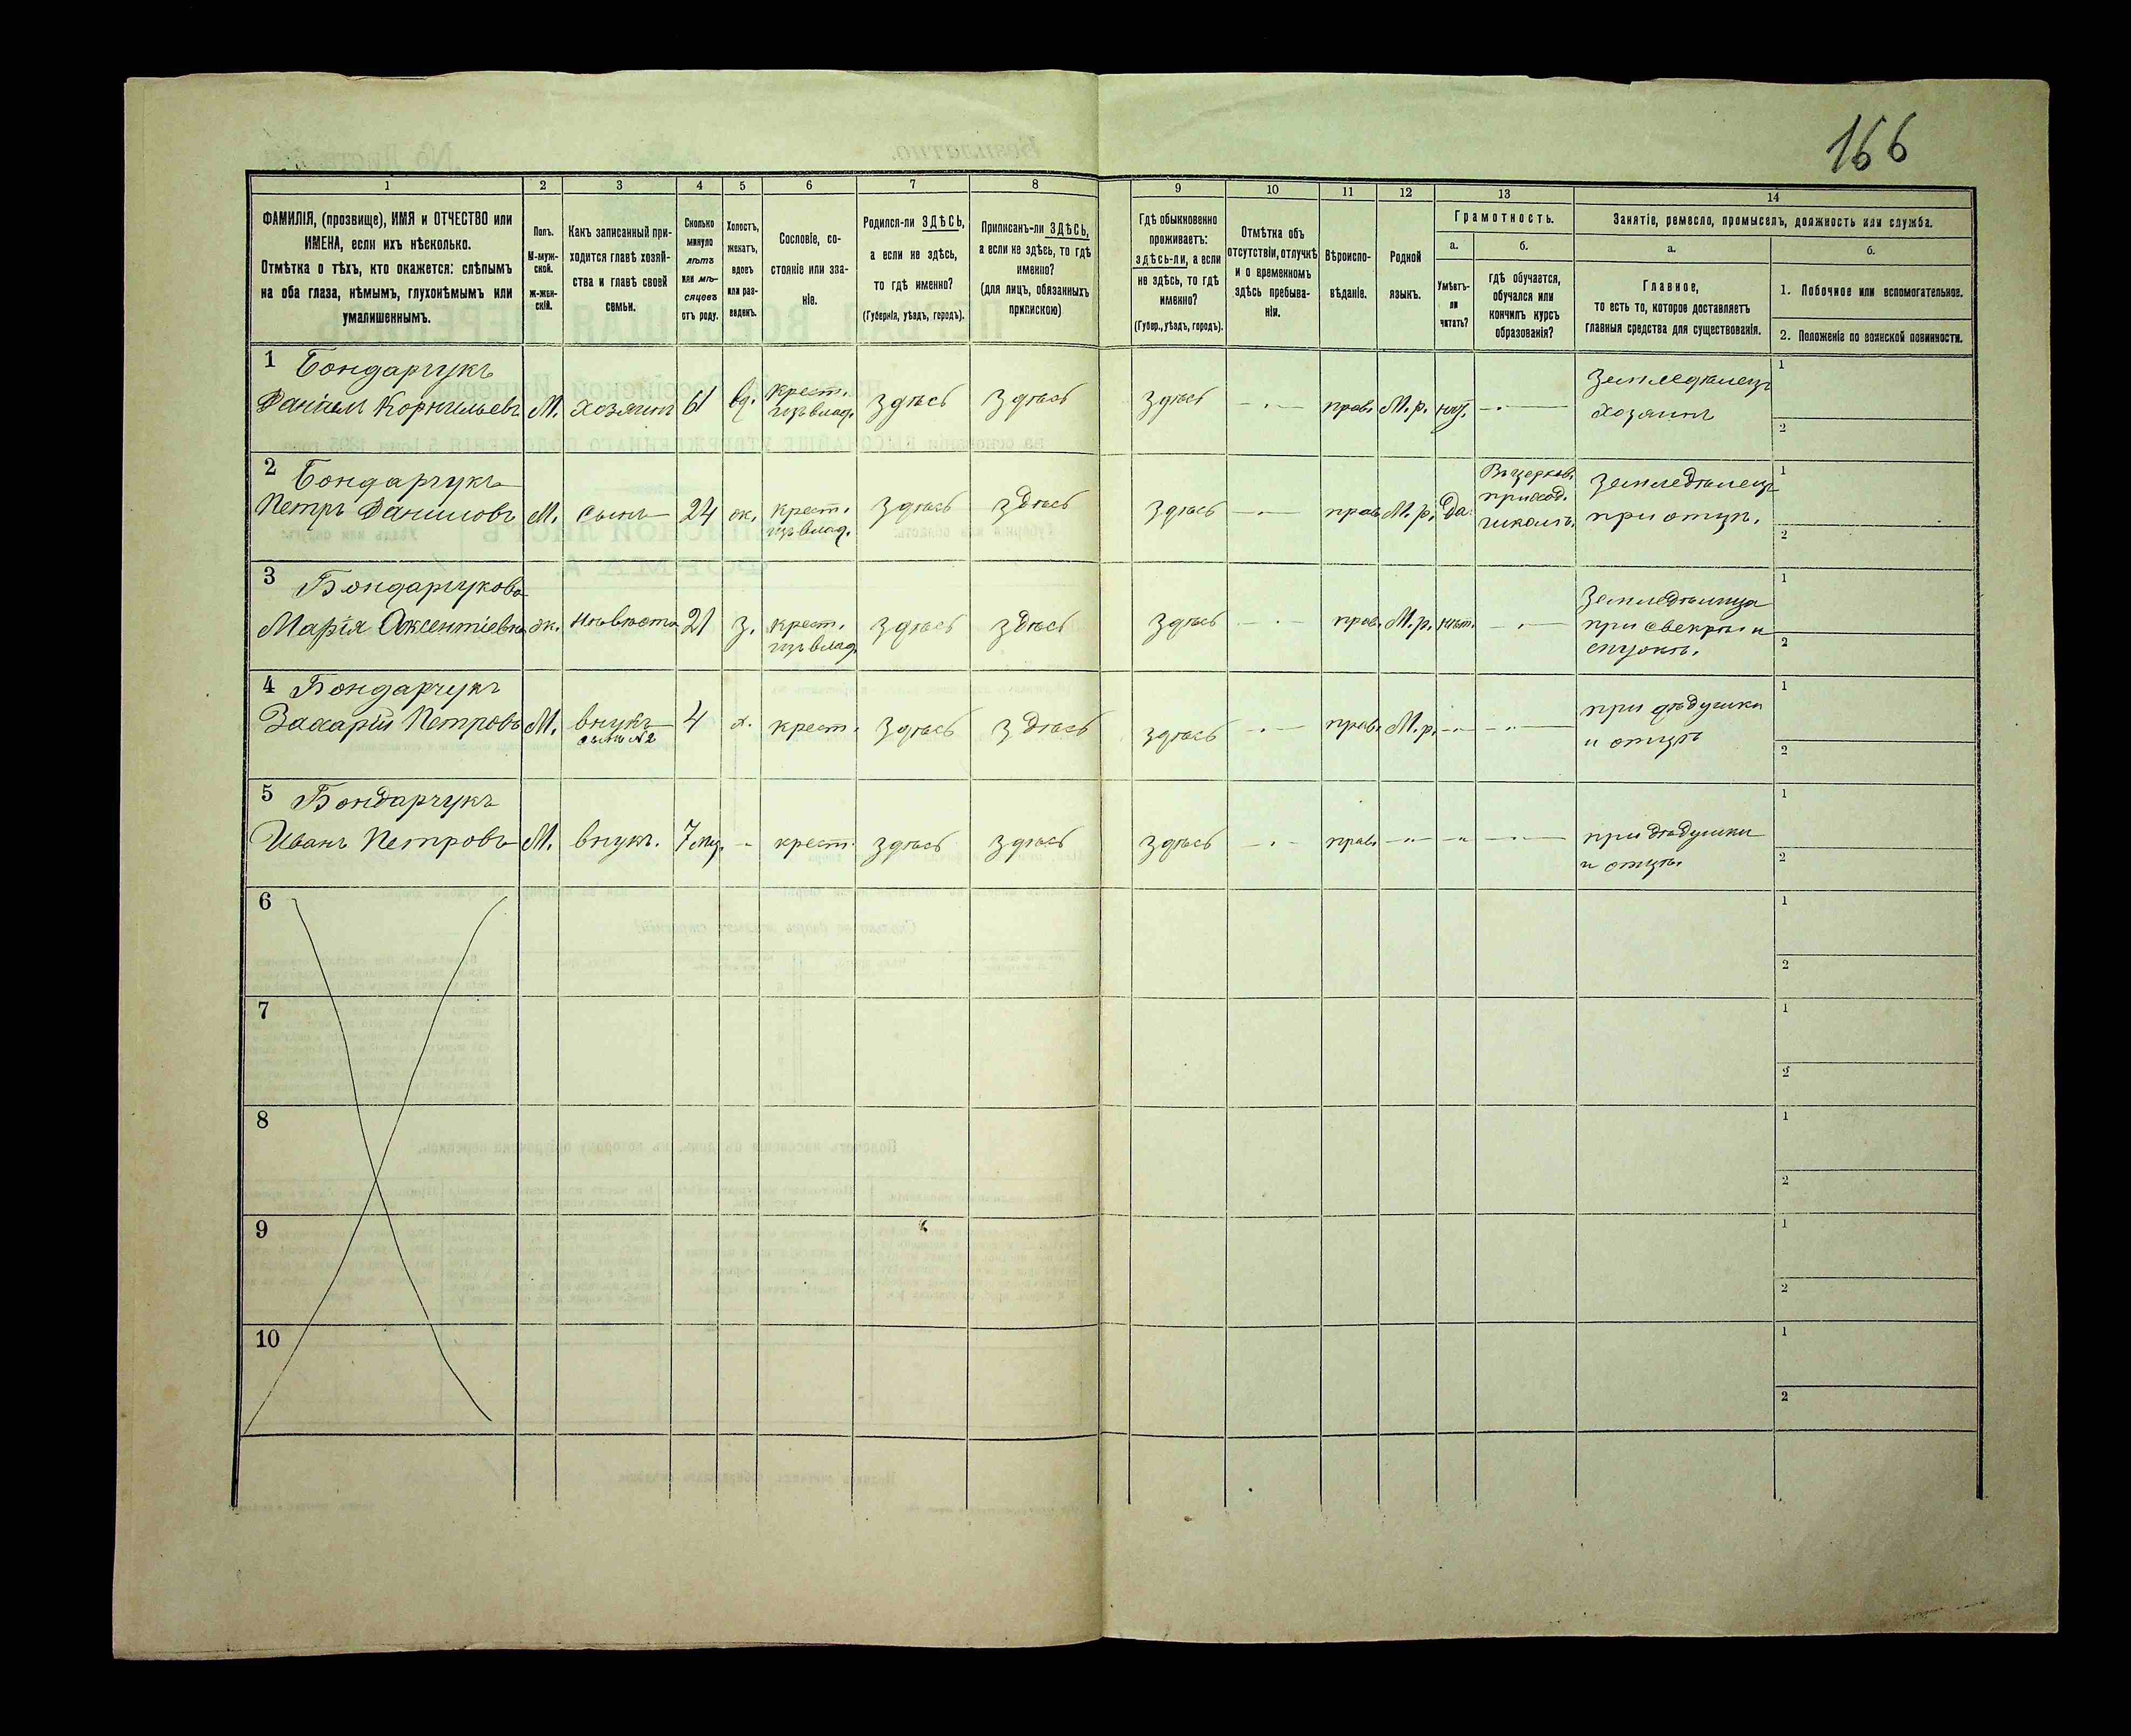 166
1
2
3
4
5
6
7
8
9
10
11
12
13
14
ФАМИЛІЯ, (прозвище), ИМЯ и ОТЧЕСТВО или
ИМЕНА, если ихъ нѣсколько.
Отмѣтка о тѣхъ, кто окажется: слѣпымъ
на оба глаза, нѣмымъ, глухонѣмымъ или
умалишеннымъ.
Полъ.
М-муж-
ской.
Ж-жен-
скій.
Какъ записанный при-
ходится главѣ хозяй-
ства и главѣ своей
семьи.
Сколько
минуло
лѣтъ
или мѣ-
сяцевъ
отъ роду.
Холостъ,
женатъ,
вдовъ
или раз-
веденъ.
Сословіе, со-
стояніе или зва-
ніе.
Родился-ли ЗДѢСЬ,
а если не здѣсь,
то гдѣ именно?
(Губернія, уѣздъ, городъ).
Приписанъ-ли ЗДѢСЬ,
а если не здѣсь, то гдѣ
именно?
(для лицъ, обязанныхъ
припискою)
Гдѣ обыкновенно
проживаетъ:
здѣсь-ли, а если
не здѣсь, то гдѣ
именно?
(Губер., уѣздъ, городъ).
Отмѣтка объ
отсутствіи, отлучкѣ
и о временномъ
здѣсь пребыва-
ніи.
Вѣроиспо-
вѣданіе.
Родной
языкъ.
Грамотность.
а.
б.
Умѣетъ-
ли
читать?
гдѣ обучается,
обучался или
кончилъ курсъ
образованія?
Занятіе, ремесло, промыселъ, должность или служба.
а.
б.
Главное,
то есть то, которое доставляетъ
главныя средства для существованія.
1. Побочное или вспомогательное.
2. Положеніе по воинской повинности.
1 Бондарчукъ
Даніилъ Корнильевъ М. хозяинъ 61 вд. крест. изъ влад. здѣсь здѣсь здѣсь — прав. М.р. нѣт. — Земледѣлецъ
хозяинъ
1
2
2 Бондарчукъ
Петръ Даниловъ М. сынъ 24 ж. крест. изъ влад. здѣсь здѣсь здѣсь — прав. М.р. Да. Въ церков. приход. школѣ. Земледѣлецъ
при отцѣ.
1
2
3 Бондарчукова
Марія Аксентіевна ж. невѣста 21 з. крест. изъ влад. здѣсь здѣсь здѣсь — прав. М.р. нѣт. — Земледѣлица
при свекрѣ и
1
2
4 Бондарчукъ
Захарій Петровъ М. внукъ сынъ №2 4 х. крест. здѣсь здѣсь здѣсь — прав. М.р. — — при дѣдушки
и отцѣ
1
2
5 Бондарчукъ
Иванъ Петровъ М. внукъ. 7 мц. - крест. здѣсь здѣсь здѣсь — прав. — — — при дѣдушки
и отцѣ.
1
2
6
1
2
7
1
2
8
1
2
9
1
2
10
1
2